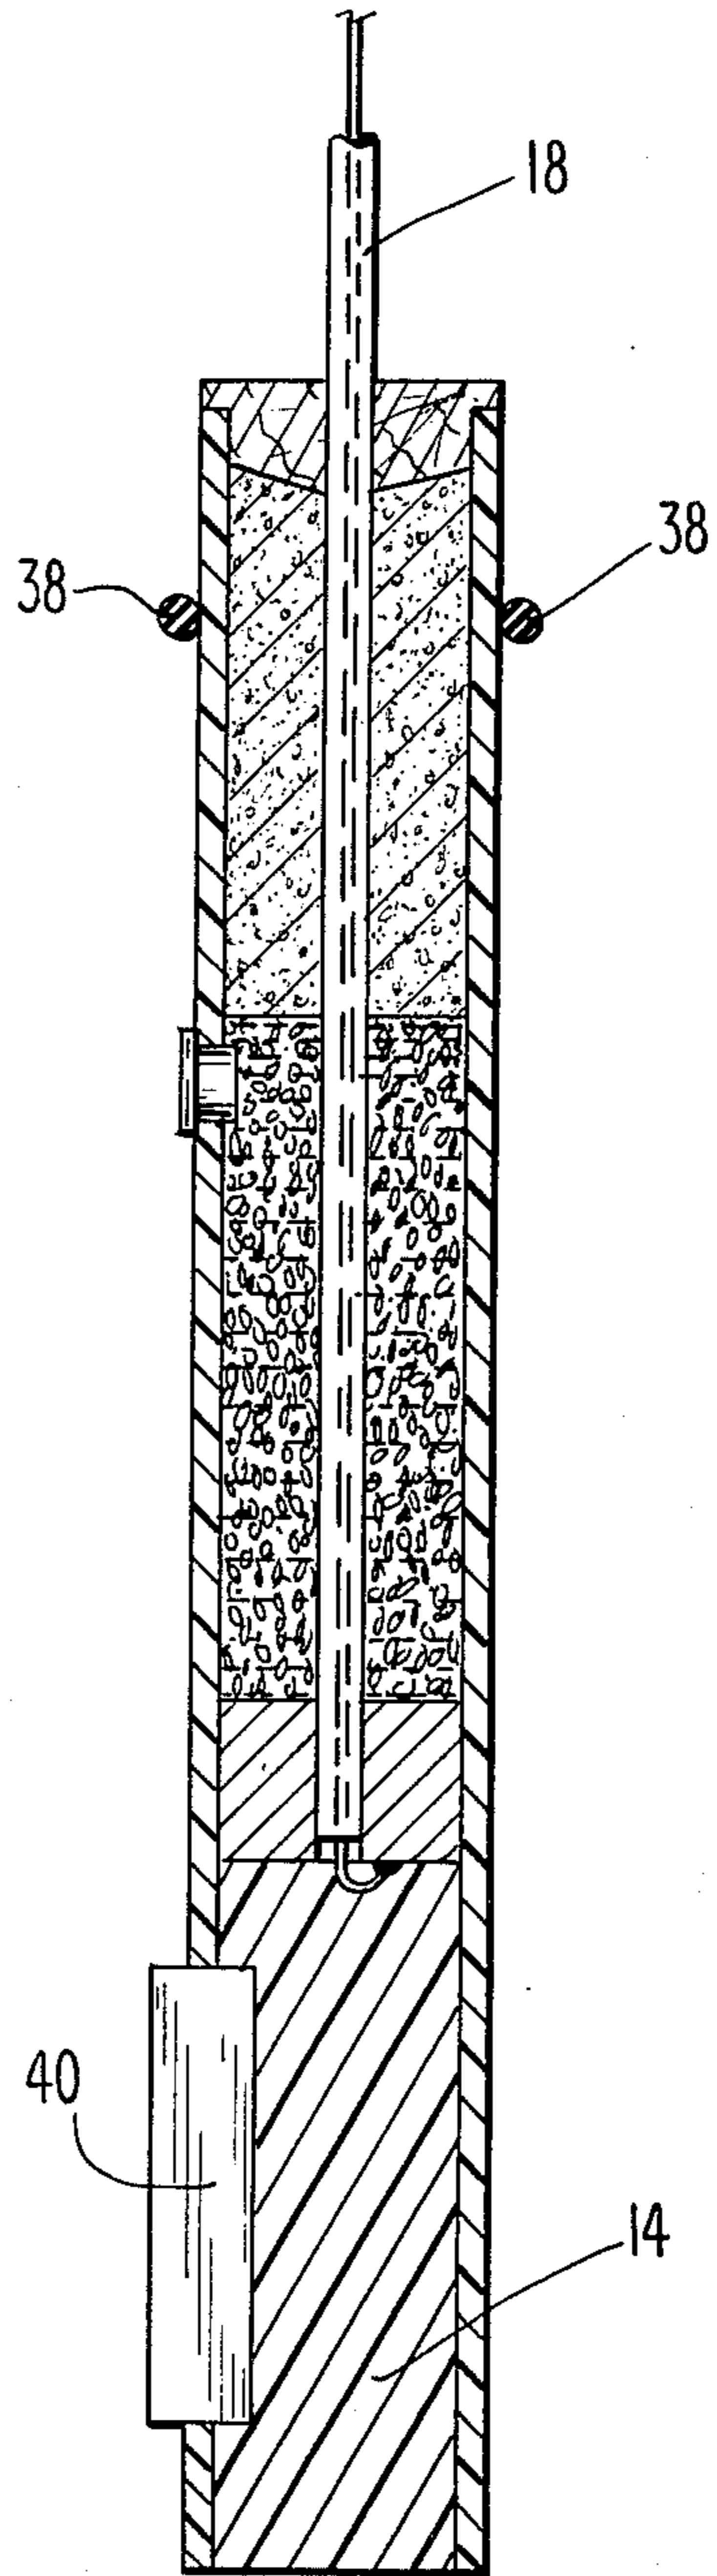 18
38
38
40
14